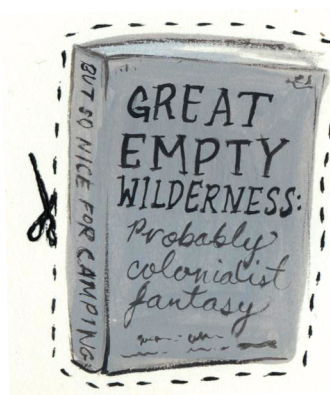 BUT SO NICE FOR CAMPING!
GREAT
EMPTY
WILDERNESS:
Probably
colonialist
fantasy